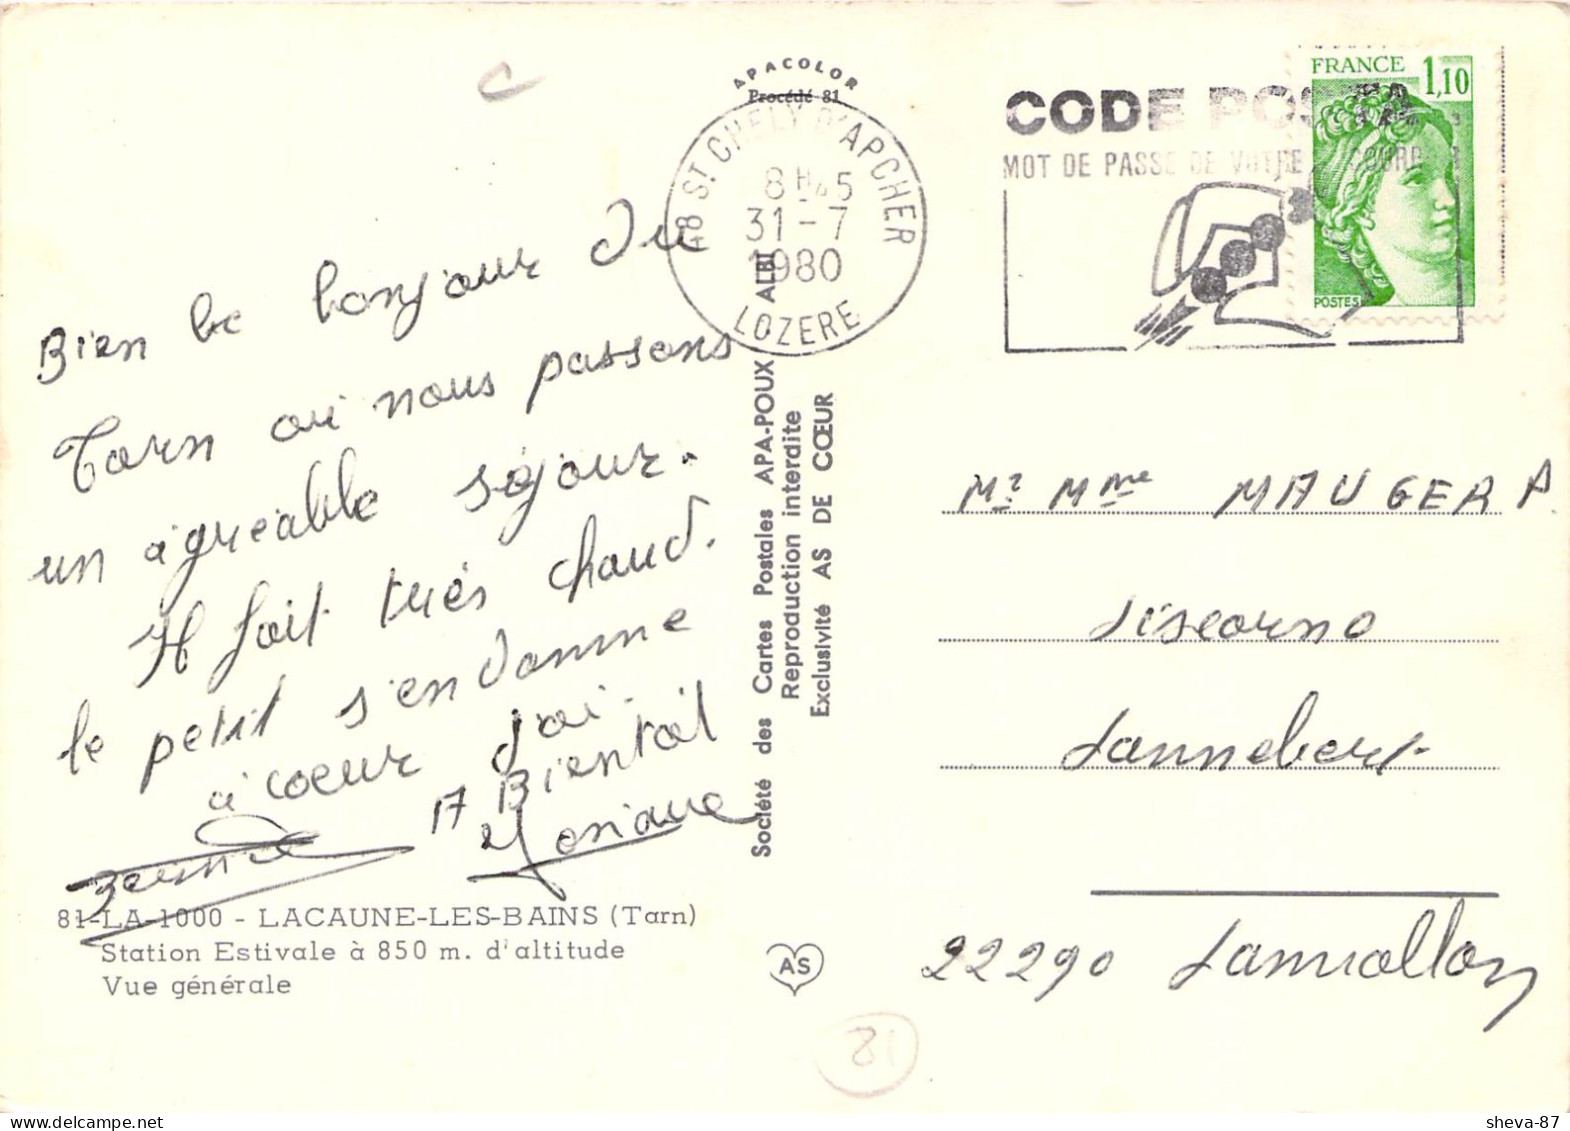 APACOLOR
Procédé 81
48 ST CHELY D'APCHER
8H45
31-7
1980
LOZERE
CODE POS
MOT DE PASSE DE VOTRE COURR
FRANCE 1,10
POSTES
Bien le bonjour du
Tarn où nous passons
un agréable séjour.
Il fait très chaud.
le petit s'en donne
à coeur joi.
A Bientôt
Josiane
81-LA-1000 - LACAUNE-LES-BAINS (Tarn)
Station Estivale à 850 m. d'altitude
Vue générale
Société des Cartes Postales APA-POUX ALBI
Reproduction interdite
Exclusivité AS DE CŒUR
AS
81
Mr Mme MAUGER A.
Liscorno
Lannebert
22290 Lanvollon
sheva-87